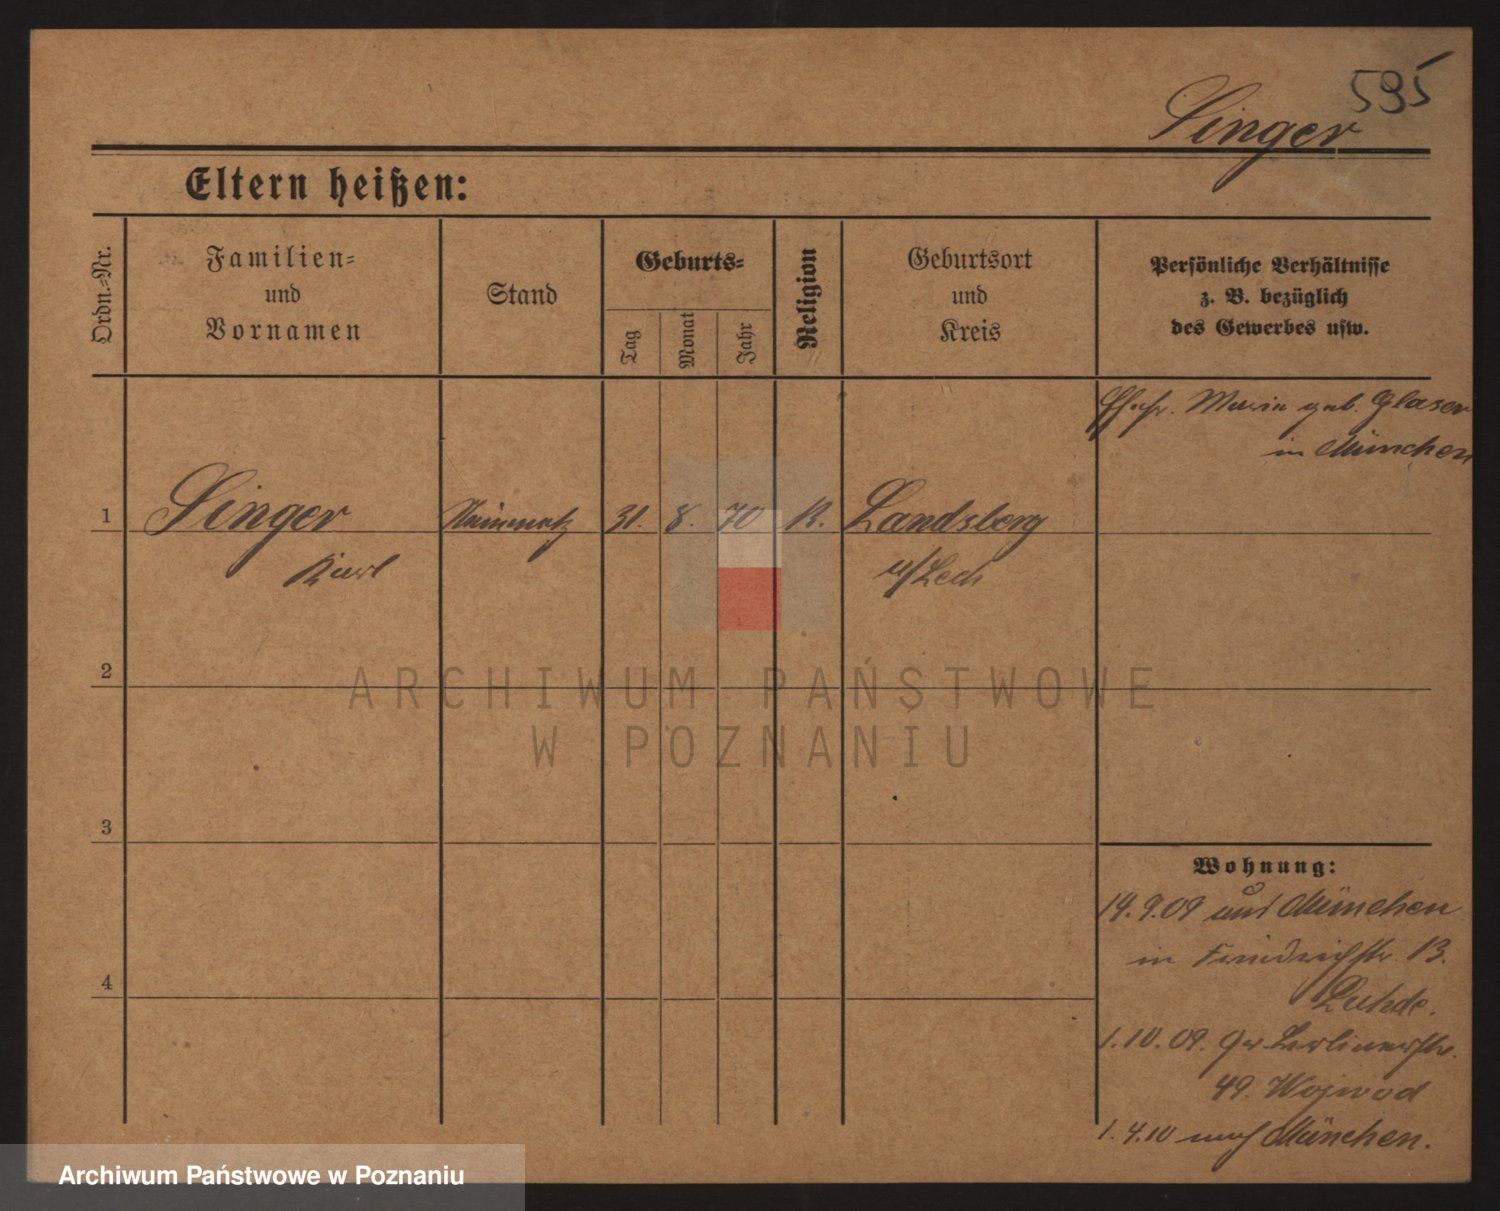 595
Singer
Eltern heißen:
Ordn.-Nr.
Familien-
und
Vornamen
Stand
Geburts-
Tag
Monat
Jahr
Religion
Geburtsort
und
Kreis
Persönliche Verhältnisse
z. B. bezüglich
des Gewerbes usw.
Ehefr. Maria geb. Glaser
in München
1 Singer Steinmetz 31. 8. 70 K. Landsberg
Karl a/Lech
2
3
4
Wohnung:
14.9.09 aus München
in Friedrichstr. 13.
1.10.09. Gr. Berlinerstr.
49. Wojwod
1.4.10 nach München.
ARCHIWUM PAŃSTWOWE
W POZNANIU
Archiwum Państwowe w Poznaniu